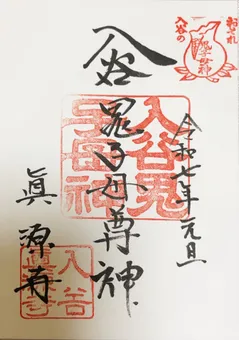 おそれ
入谷の
鬼子母神
令和七年元旦
入谷
鬼子母尊神
入谷鬼
子母神
眞源寺
入谷
眞源寺